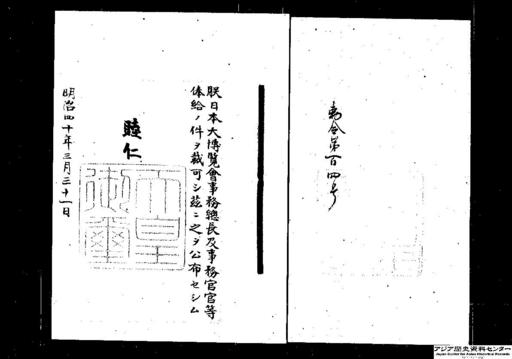 勅令第百四号
朕日本大博覧會事務總長及事務官官等
俸給ノ件ヲ裁可シ茲ニ之ヲ公布セシム
睦仁
天皇御璽
明治四十年三月三十一日
アジア歴史資料センター
Japan Center for Asian Historical Records